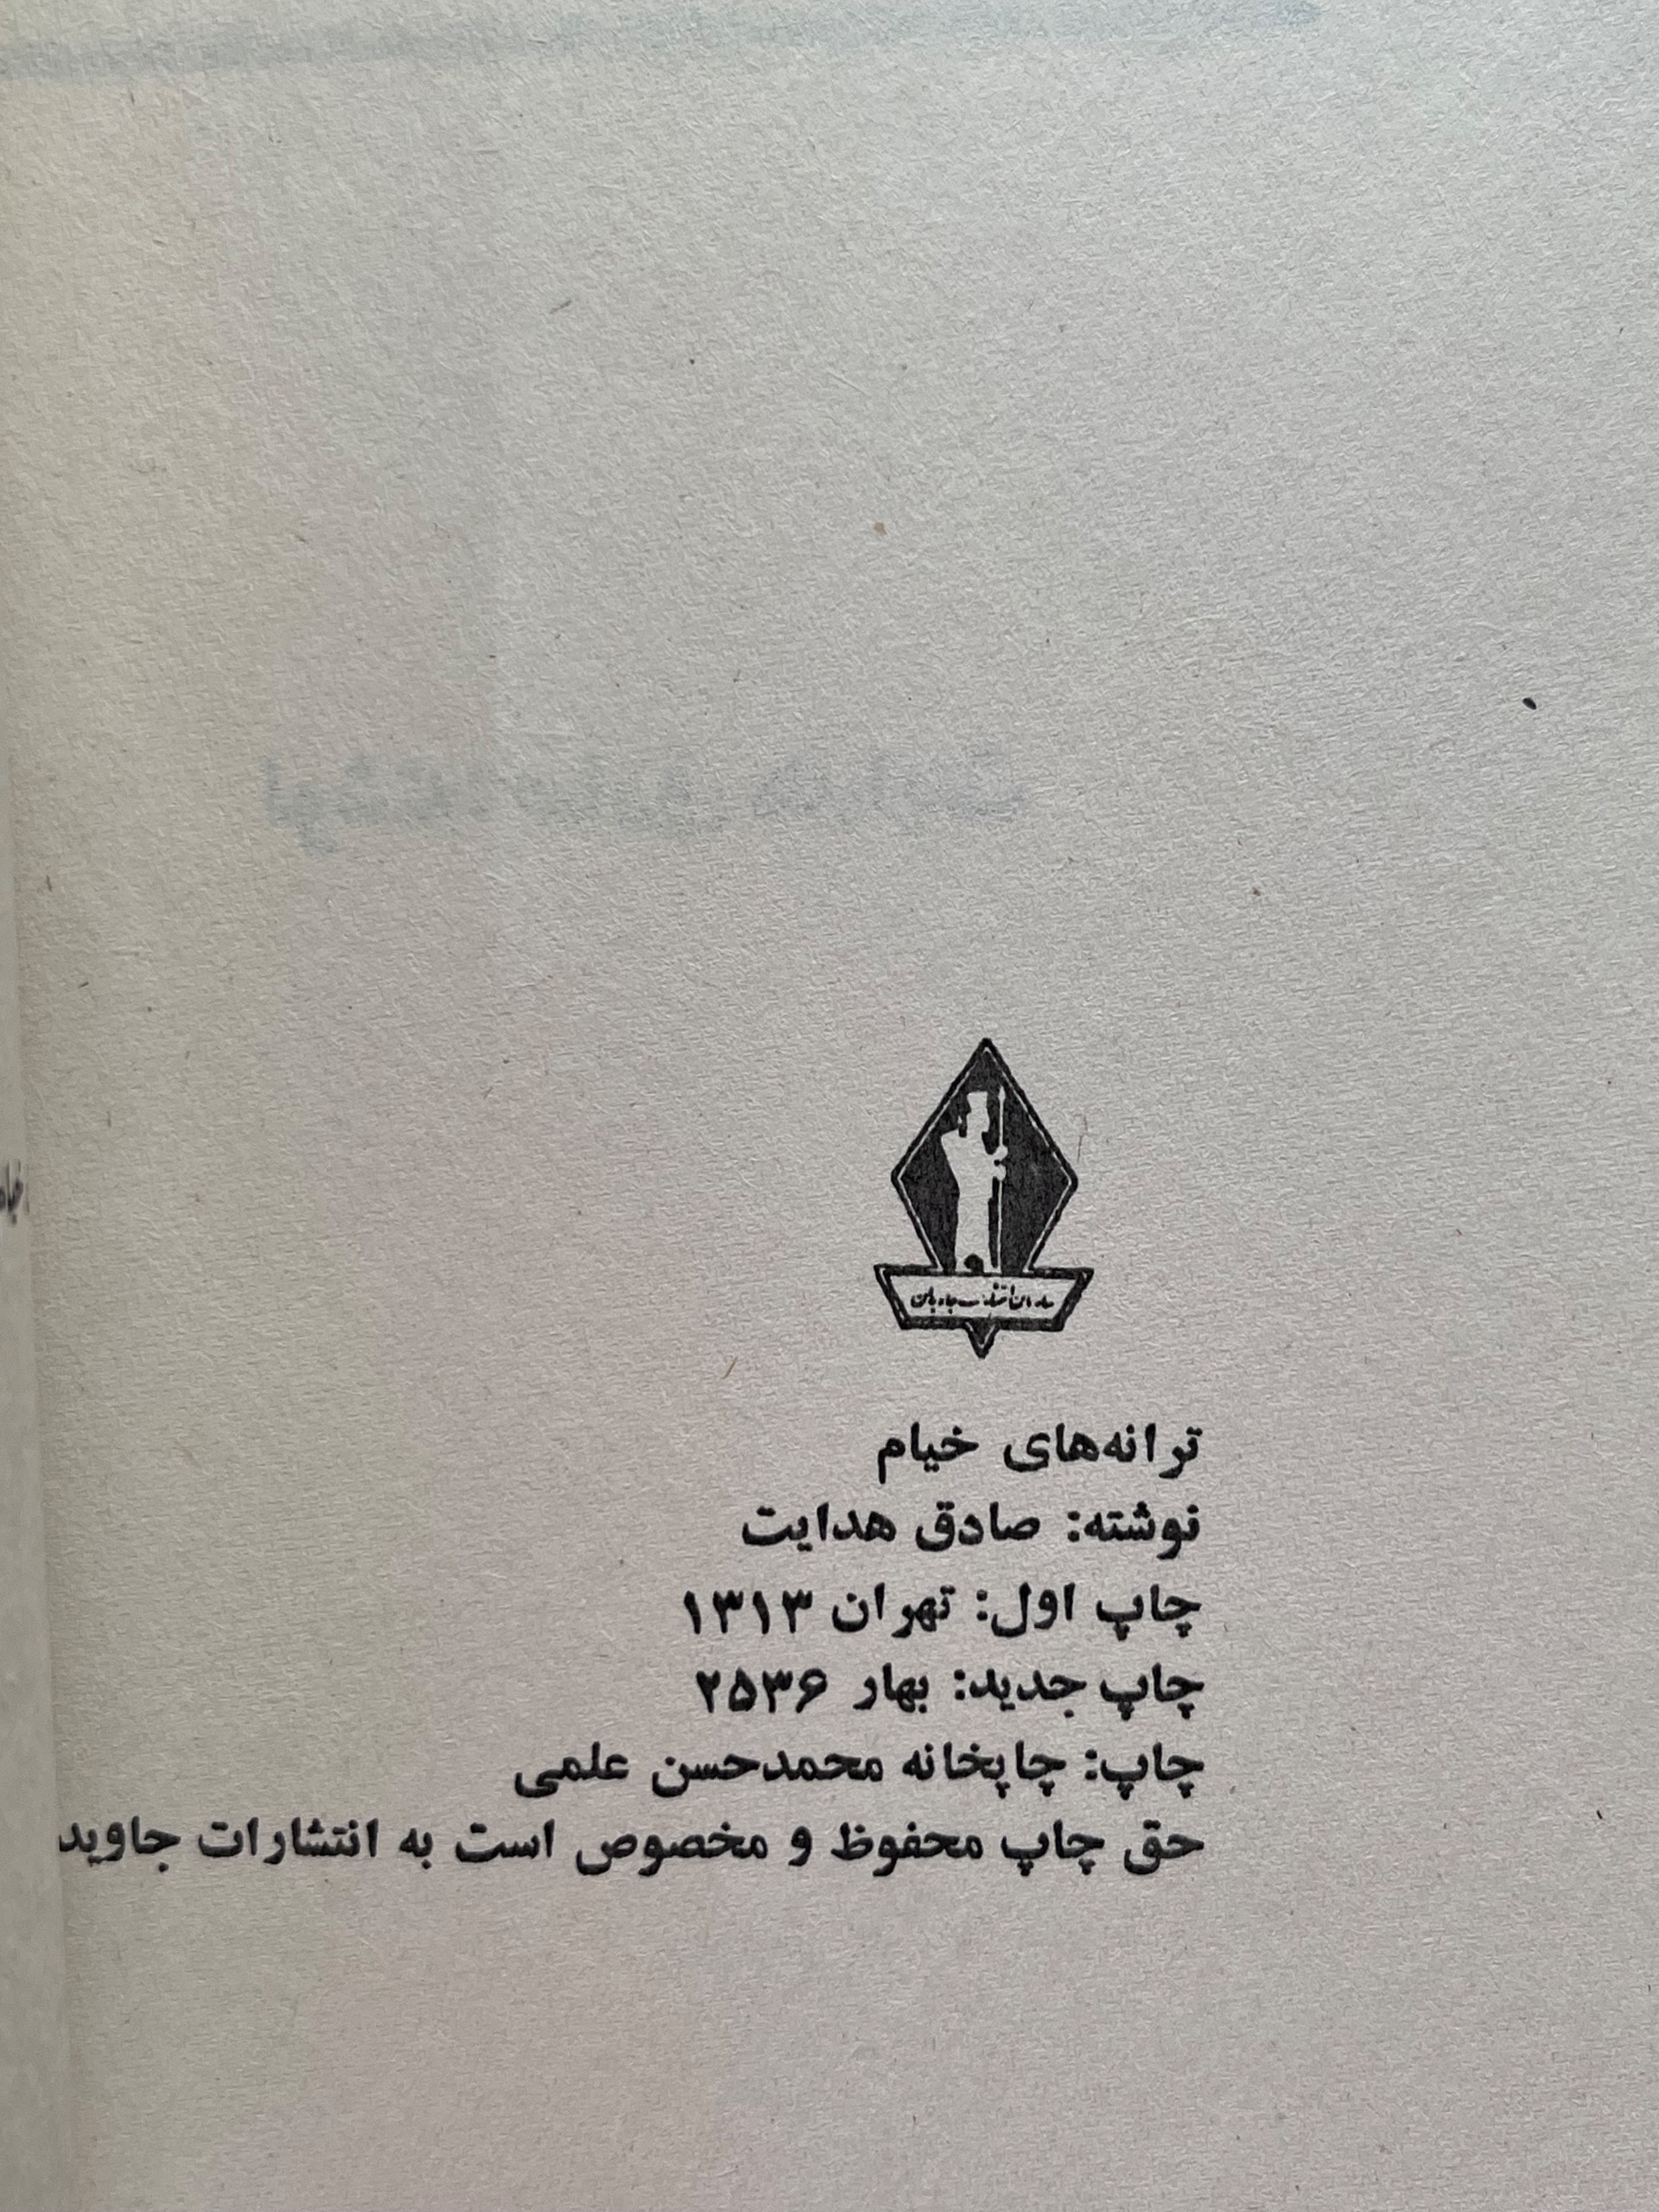 ترانه‌های خیام
نوشته: صادق هدایت
چاپ اول: تهران ۱۳۱۳
چاپ جدید: بهار ۲۵۳۶
چاپ: چاپخانه محمدحسن علمی
حق چاپ محفوظ و مخصوص است به انتشارات جاوید